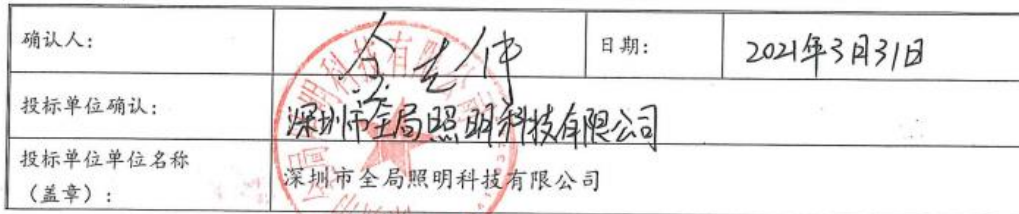 确认人： 日期： 2021年3月31日
投标单位确认： 深圳市全局照明科技有限公司
投标单位单位名称
（盖章）： 深圳市全局照明科技有限公司